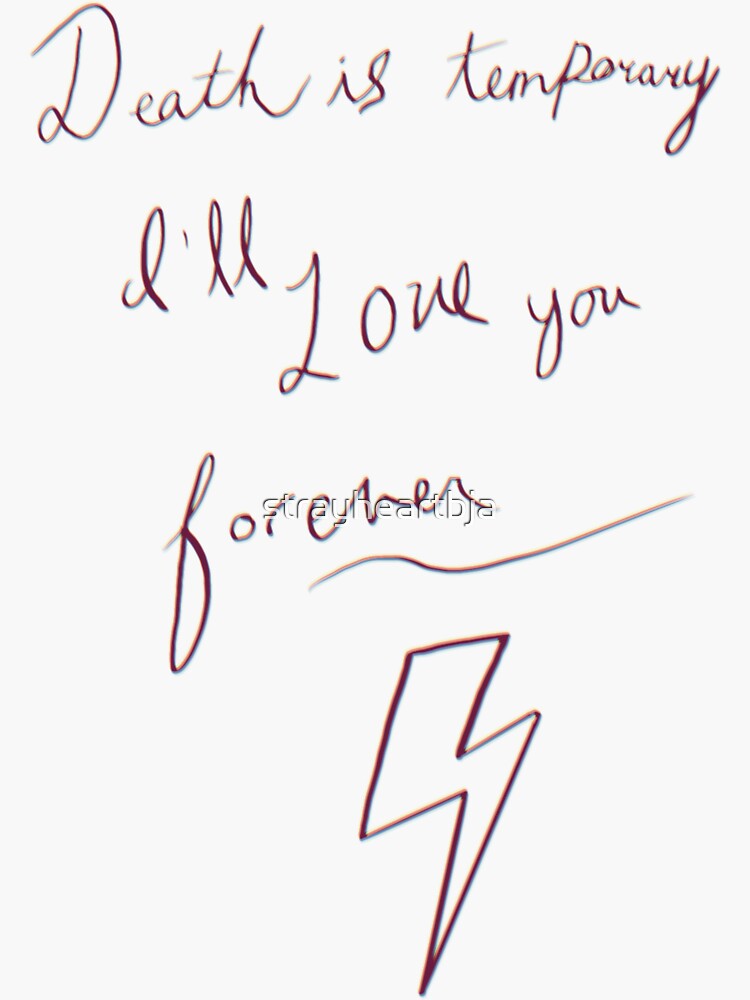 Death is temporary
I'll Love you
forever
strayheartbja